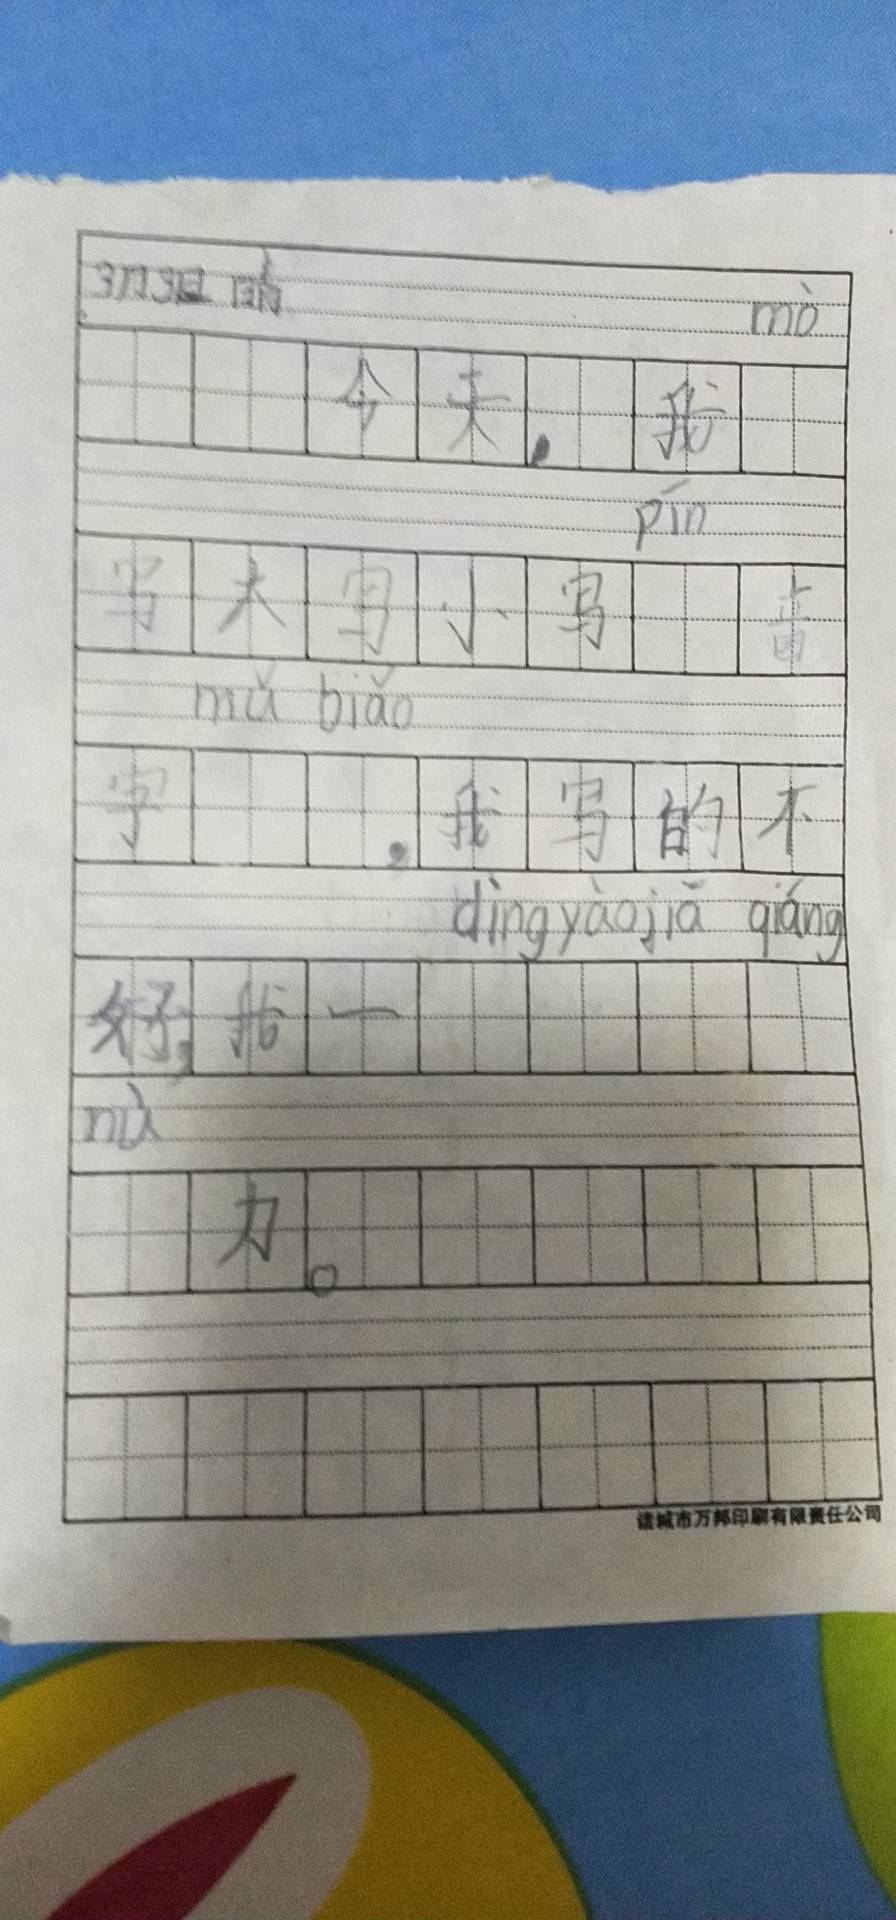 3月3日 晴
mò
今天，我
pīn
写大写小写 音
mǔ biǎo
字 ，我写的不
dìng yào jiā qiáng
好，我一
nǔ
力。
诸城市万邦印刷有限责任公司